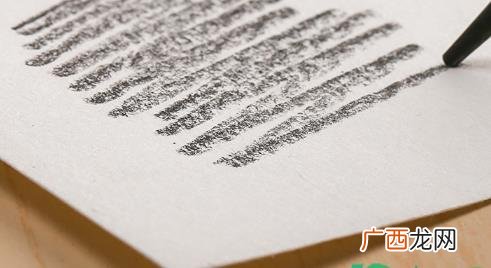 广西龙网